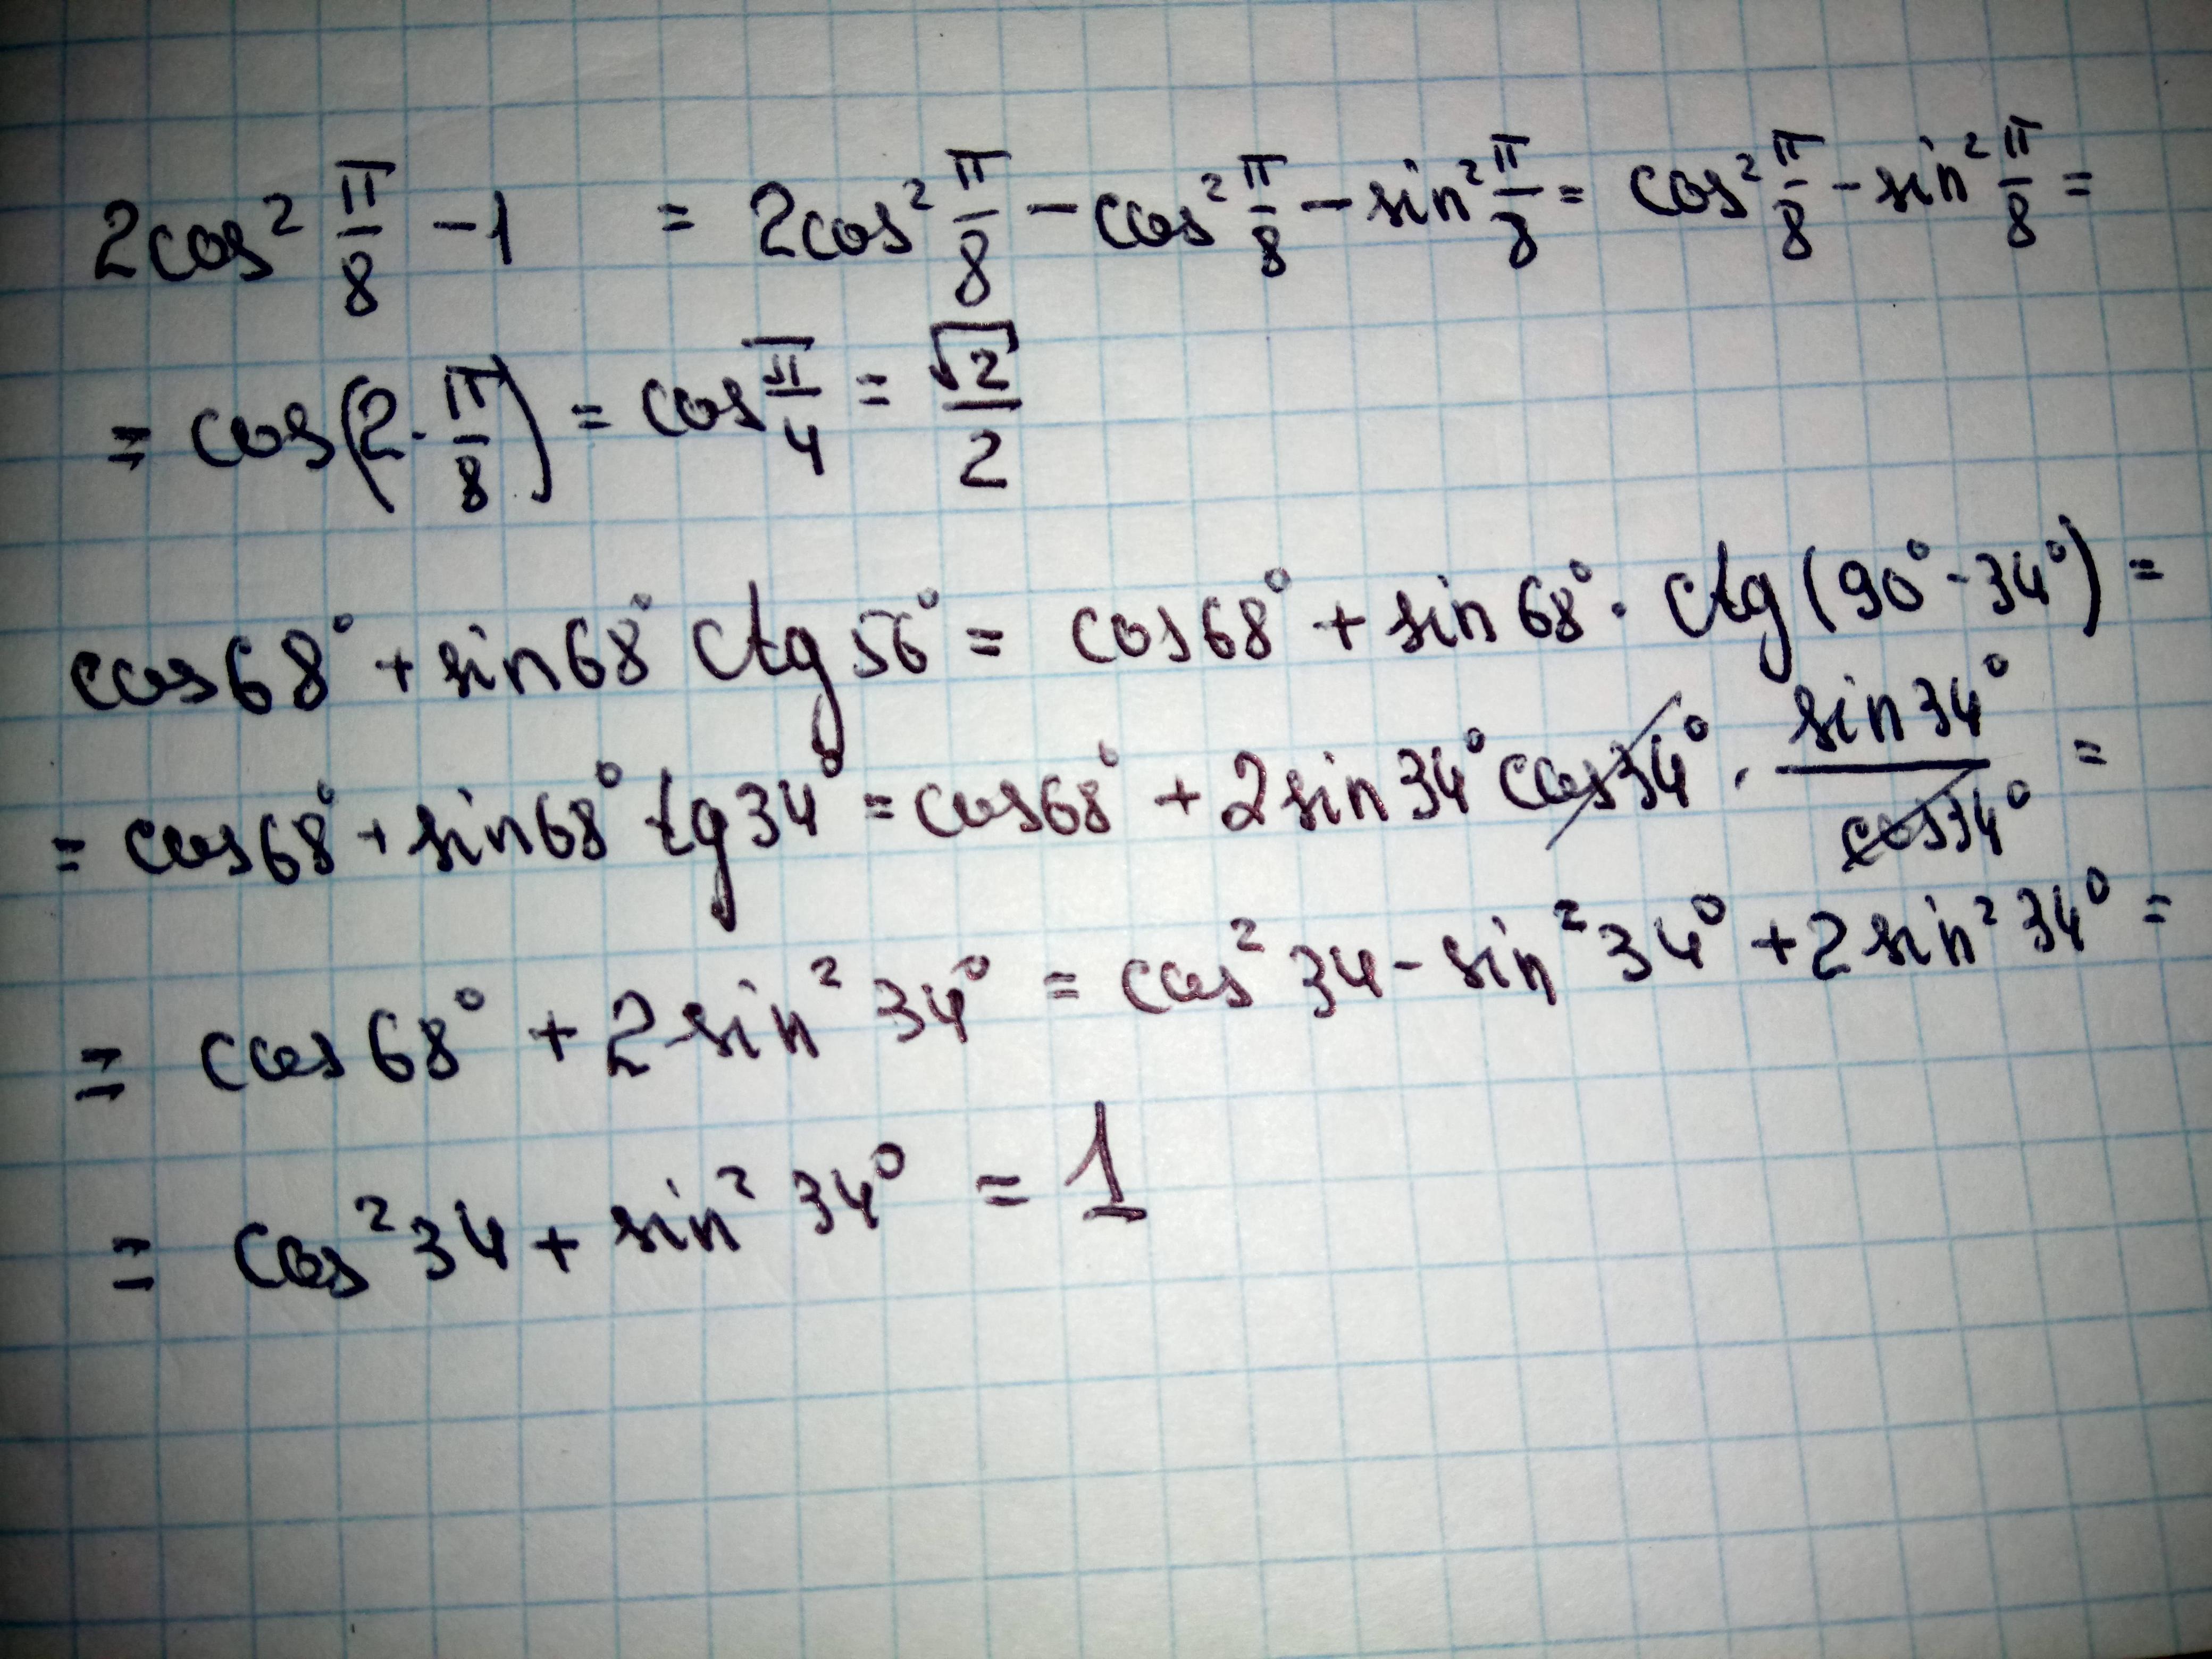 2cos² π/8 - 1 = 2cos² π/8 - cos² π/8 - sin² π/8 = cos² π/8 - sin² π/8 =
= cos(2 · π/8) = cos π/4 = √2/2
cos68° + sin68° ctg56° = cos68° + sin68° · ctg(90° - 34°) =
= cos68° + sin68° tg34° = cos68° + 2sin34° cos34° · sin34°/cos34° =
= cos68° + 2sin² 34° = cos² 34 - sin² 34° + 2sin² 34° =
= cos² 34 + sin² 34° = 1